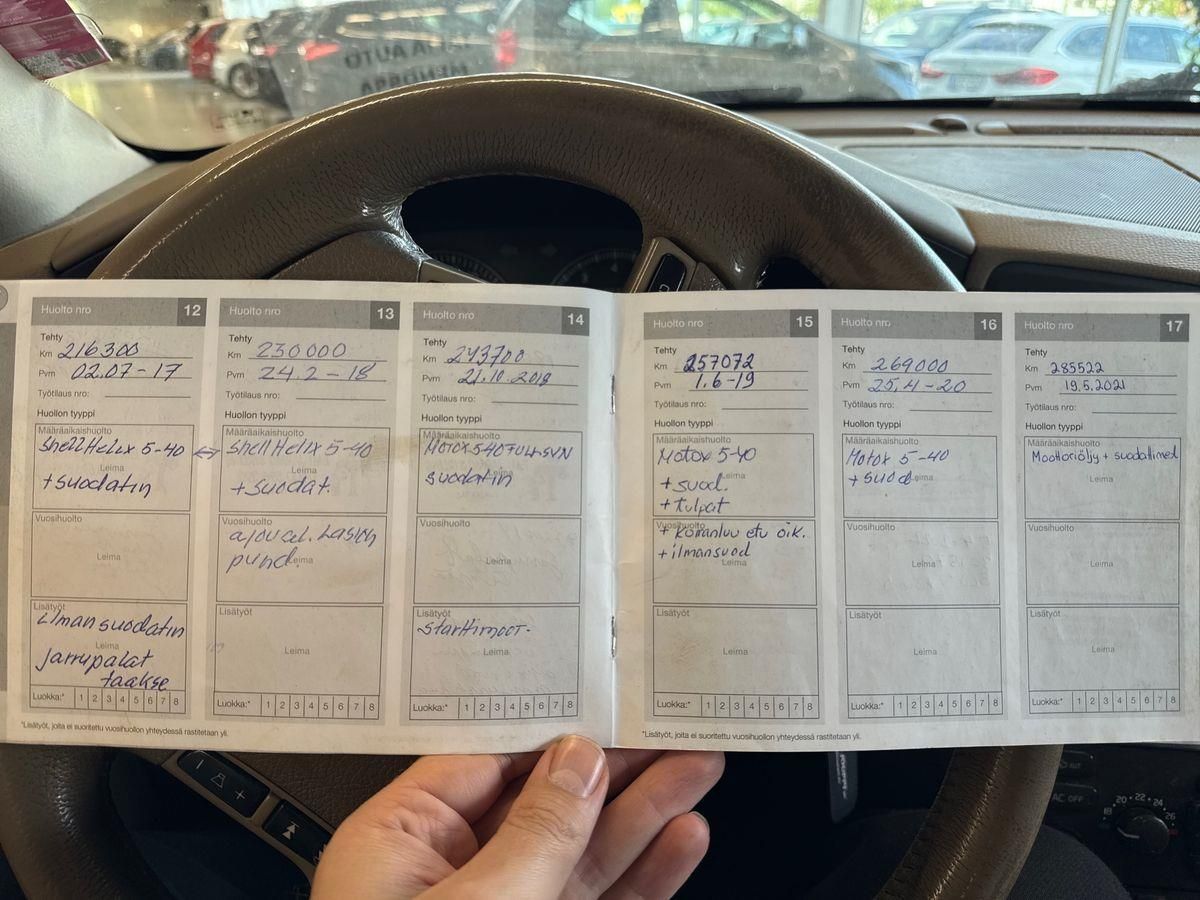 Huolto nro 12
Tehty
Km 216300
Pvm 02.07-17
Työtilaus nro:
Huollon tyyppi
Määräaikaishuolto
Shell Helix 5-40
Leima
+suodatin
Vuosihuolto
Leima
Lisätyöt
ilmansuodatin
Leima
jarrupalat
taakse
Luokka:* 1 2 3 4 5 6 7 8
Huolto nro 13
Tehty
Km 230000
Pvm 24.2-18
Työtilaus nro:
Huollon tyyppi
Määräaikaishuolto
Shell Helix 5-40
Leima
+suodat.
Vuosihuolto
Leima
Lisätyöt
Leima
Luokka:* 1 2 3 4 5 6 7 8
Huolto nro 14
Tehty
Km 243700
Pvm 21.10.2018
Työtilaus nro:
Huollon tyyppi
Määräaikaishuolto
Motox 540
Leima
suodatin
Vuosihuolto
Leima
Lisätyöt
starttimoot-
Leima
Luokka:* 1 2 3 4 5 6 7 8
*Lisätyöt, joita ei suoritettu vuosihuollon yhteydessä rastitetaan yli.
Huolto nro 15
Tehty
Km 257072
Pvm 1.6-19
Työtilaus nro:
Huollon tyyppi
Määräaikaishuolto
Motox 5-40
+suod.
Leima
+tulpat
Vuosihuolto
+ koiranluu etu oik.
+ilmansuod
Leima
Lisätyöt
Leima
Luokka:* 1 2 3 4 5 6 7 8
Huolto nro 16
Tehty
Km 269000
Pvm 25.4-20
Työtilaus nro:
Huollon tyyppi
Määräaikaishuolto
Motox 5-40
+suod
Leima
Vuosihuolto
Leima
Lisätyöt
Leima
Luokka:* 1 2 3 4 5 6 7 8
Huolto nro 17
Tehty
Km 285522
Pvm 19.5.2021
Työtilaus nro:
Huollon tyyppi
Määräaikaishuolto
Moottoriöljy + suodattimed
Leima
Vuosihuolto
Leima
Lisätyöt
Leima
Luokka:* 1 2 3 4 5 6 7 8
*Lisätyöt, joita ei suoritettu vuosihuollon yhteydessä rastitetaan yli.
AC OFF
18 20 22 24 26